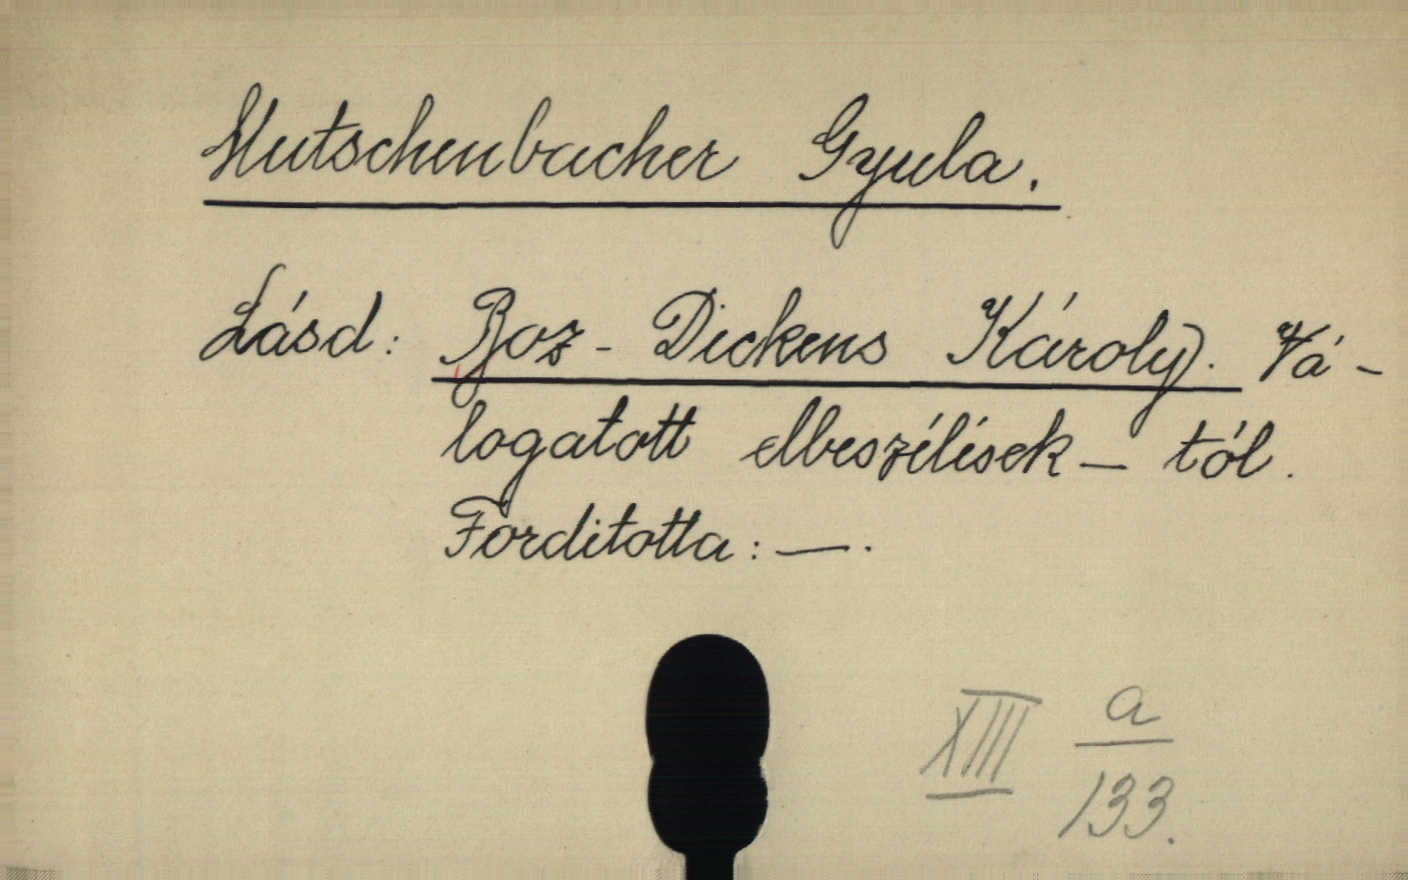 Mutschenbacher Gyula.
Lásd: Boz - Dickens Károly). Vá-
logatott elbeszélések — tól.
Fordította: —.
XIII a/133.